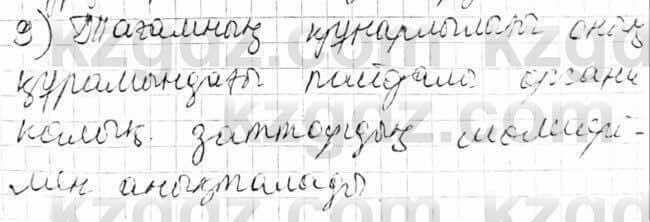 9) Тағамның құнарлылығы оның
құрамындағы пайдалы органи
калық заттардың мөлшері-
мен анықталады